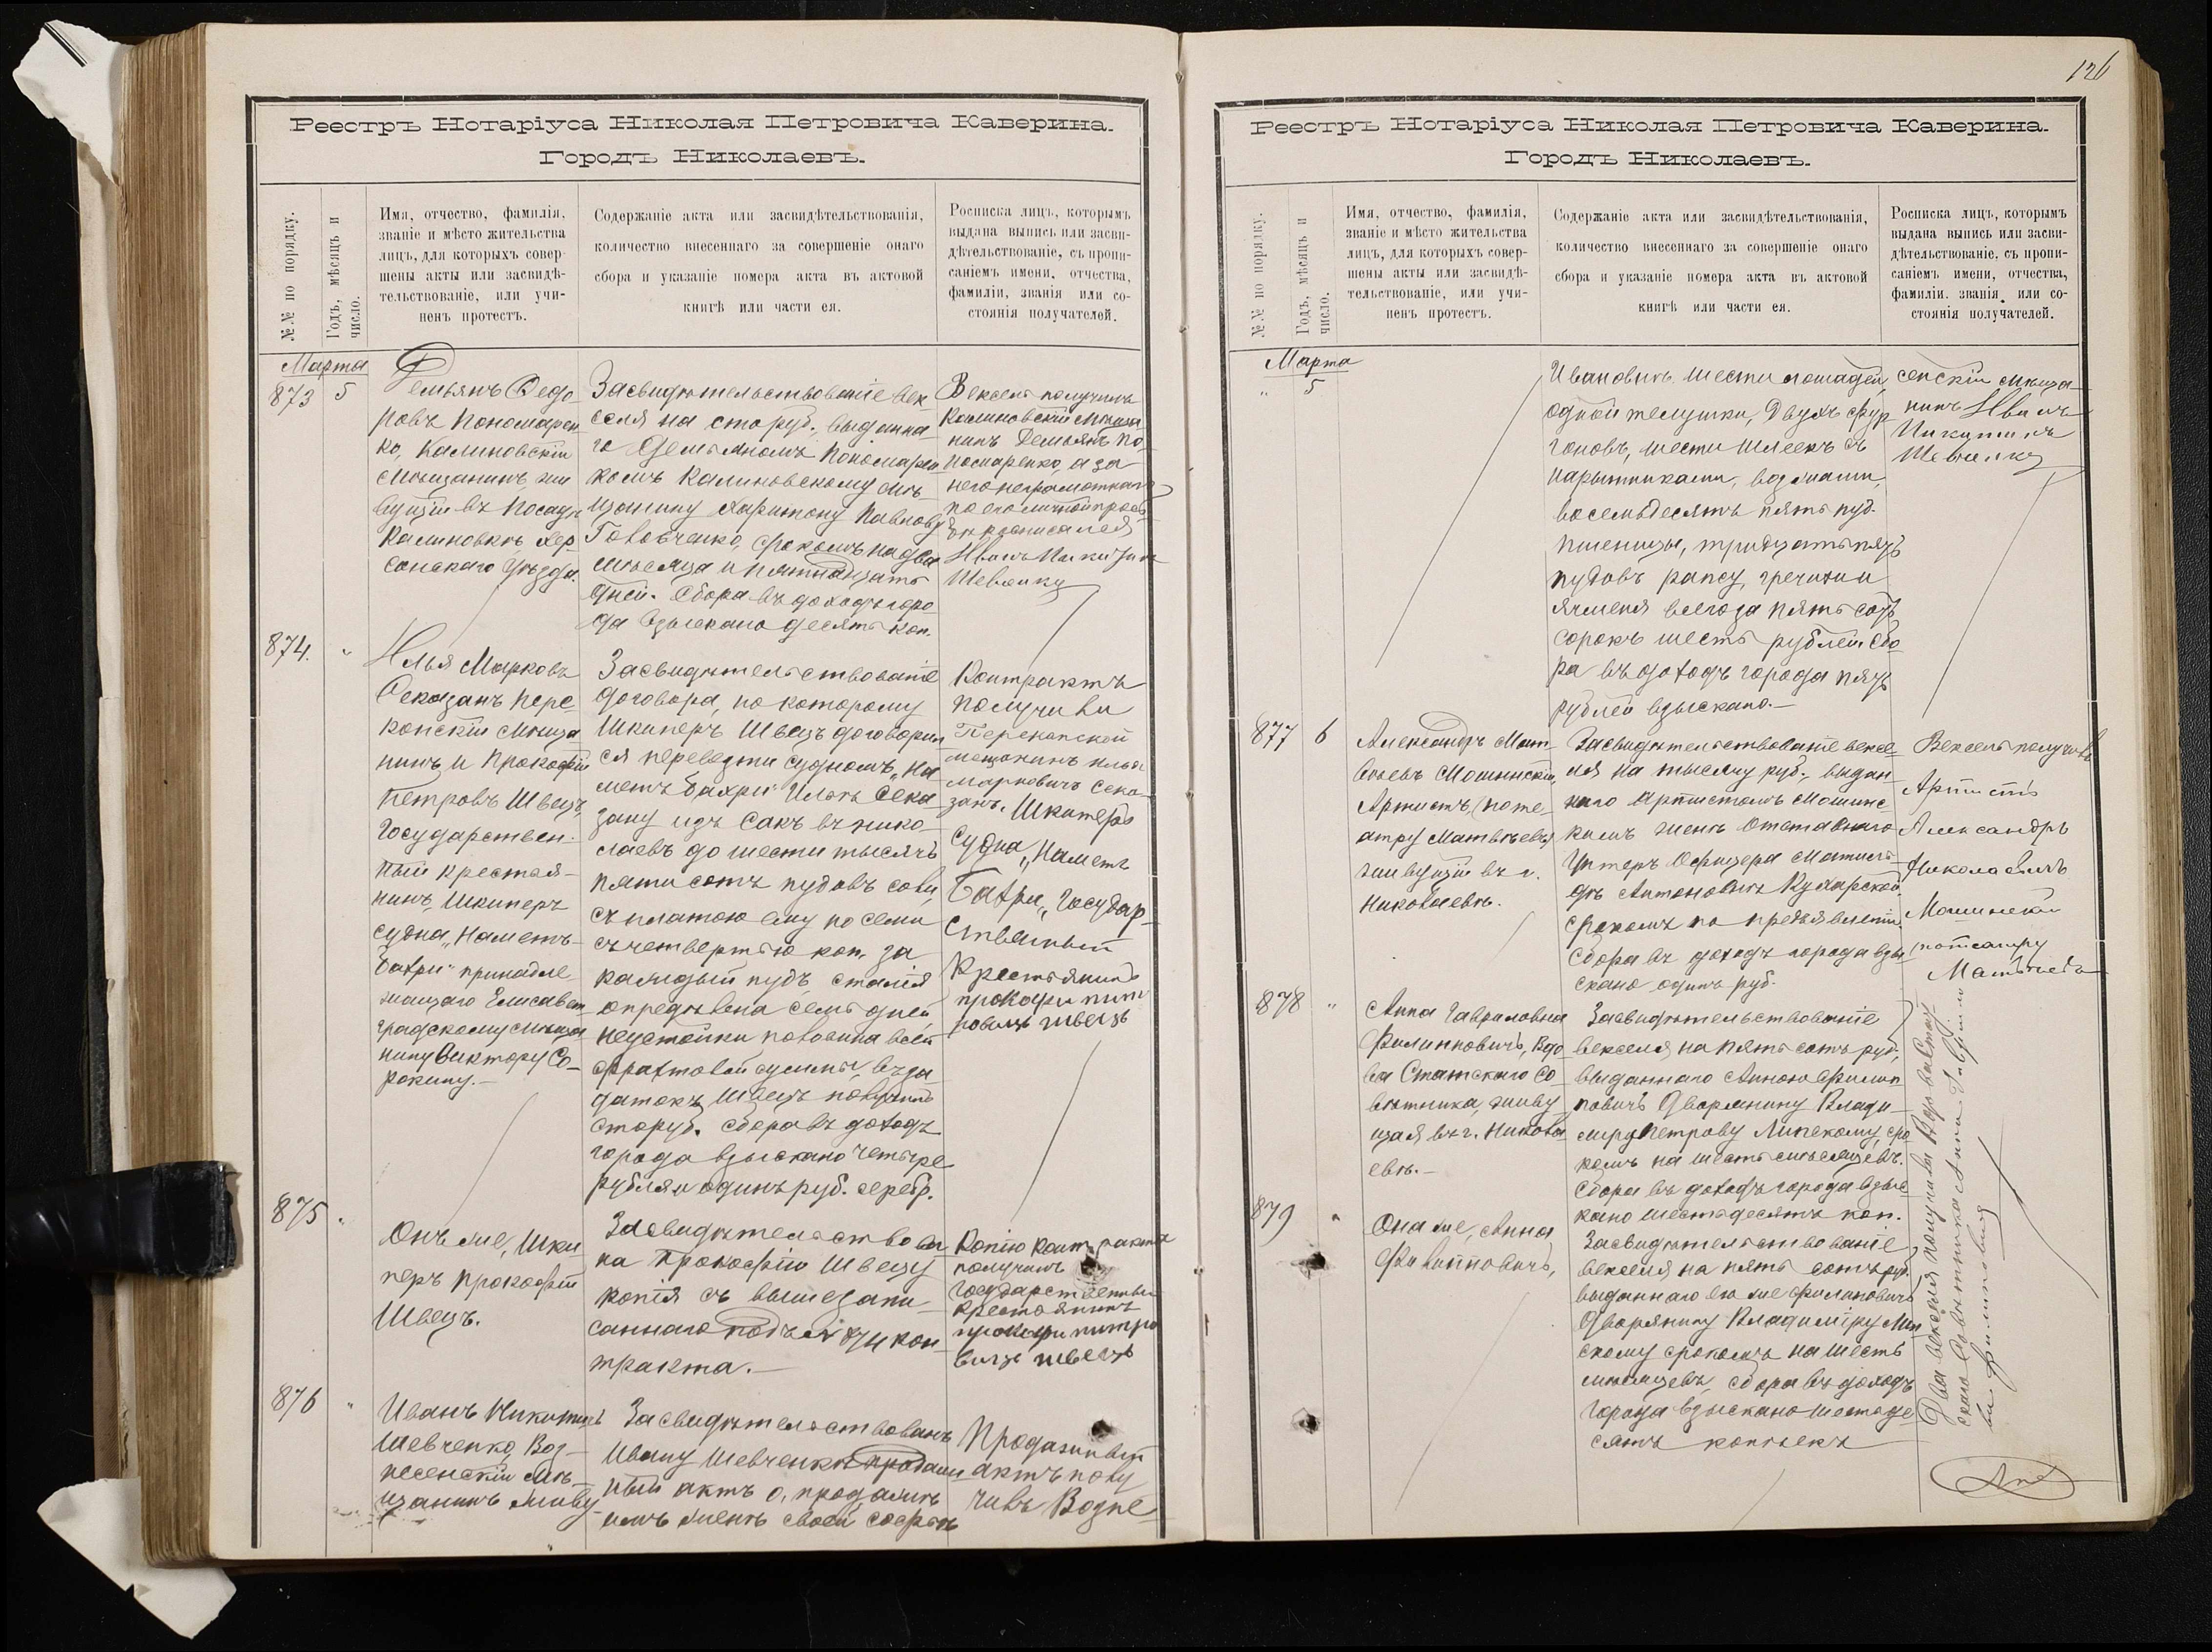 Реестръ Нотаріуса Николая Петровича Каверина.
Городъ Николаевъ.
№№ по порядку.
Годъ, мѣсяцъ и
число.
Имя, отчество, фамилія,
званіе и мѣсто жительства
лицъ, для которыхъ совер-
шены акты или засвидѣ-
тельствованіе, или учи-
ненъ протестъ.
Содержаніе акта или засвидѣтельствованія,
количество внесеннаго за совершеніе онаго
сбора и указаніе номера акта въ актовой
книгѣ или части ея.
Росписка лицъ, которымъ
выдана выпись или засви-
дѣтельствованіе, съ пропи-
саніемъ имени, отчества,
фамиліи, званія или со-
стоянія получателей.
Марта
873 5
Демьянъ Федо
ровъ Пономарен
ко, Калиновскій
Мѣщанинъ, жи
вущій въ Посадѣ
Калиновкѣ Хер-
сонскаго Уѣзда.
Засвидѣтельствованіе век
селя на сто руб., выданна
го Демьяномъ Пономарен
комъ Калиновскому мѣ
щанину Харитону Павлову
Головченко, срокомъ на два
мѣсяца и пятнадцать
дней. Сбора въ доходъ горо
да взыскано десять коп.
Вексель получилъ
Калиновскій Мѣща
нинъ Демьянъ По
номаренко, а за
него неграмотнаго
по его личной прось
бѣ росписался
Иванъ Никитин
Шевченко
874. "
Илья Марковъ
Секазанъ Пере-
копскій Мѣща
нинъ и Прокофій
Петровъ Швецъ,
Государствен-
ный крестья-
нинъ, Шкиперъ
судна „Наметъ-
Бахри" принадле
жащаго Елисавет
градскому мѣща
нину Виктору Со-
рокину.-
Засвидѣтельствованіе
договора, по которому
Шкиперъ Швецъ договорил
ся перевезти судномъ „На
метъ Бахри" Ильѣ Сека
зану изъ Сакъ въ Нико-
лаевъ до шести тысячъ
пяти сотъ пудовъ соли,
съ платою ему по семи
съ четвертью коп. за
каждый пудъ, сталія
опредѣлена семь дней,
неустойки половина всей
фрахтовой суммы, въ за-
датокъ Швецъ получилъ
сто руб. Сбора въ доходъ
города взыскано четыре
рубля и одинъ руб. серебр.
Контрактъ
получили
Перекопской
мещанинъ илья
марковичъ Сека-
занъ. Шкиперъ
судна „Наметъ
Бахри„ Государ-
ственный
Крестьянинъ
прокофи пит
ровичъ швецъ
875 "
Онъ же, Шки
перъ Прокофій
Швецъ.
Засвидѣтельствова
на Прокофію Швецу
копія съ вышезапи-
саннаго подъ № 874 кон-
тракта.-
Копію Контракта
получилъ
Государственный
Крестьянинъ
прокофи питро
вичъ швецъ
876 "
Иванъ Никитинъ
Шевченко, Воз-
несенскій Мѣ-
щанинъ живу-
Засвидѣтельствованъ
Ивану Шевченко продаж
ный актъ о продажѣ
имъ женѣ своей Софьѣ
Продажный
актъ полу
чивъ Вознe-
126
Реестръ Нотаріуса Николая Петровича Каверина.
Городъ Николаевъ.
№№ по порядку.
Годъ, мѣсяцъ и
число.
Имя, отчество, фамилія,
званіе и мѣсто жительства
лицъ, для которыхъ совер-
шены акты или засвидѣ-
тельствованіе, или учи-
ненъ протестъ.
Содержаніе акта или засвидѣтельствованія,
количество внесеннаго за совершеніе онаго
сбора и указаніе номера акта въ актовой
книгѣ или части ея.
Росписка лицъ, которымъ
выдана выпись или засви-
дѣтельствованіе, съ пропи-
саніемъ имени, отчества,
фамиліи. званія или со-
стоянія получателей.
Марта
" 5
Ивановнѣ шести лошадей,
одной телушки, двухъ фур
гоновъ, шести шлеекъ съ
нарытниками, возжами,
восемьдесятъ пять пуд.
пшеницы, тридцать пять
пудовъ рапсу, гречихи и
ячменя всего за пять сотъ
сорокъ шесть рублей Сбо
ра въ доходъ города пять
рублей взыскано.-
сенскій мѣща
нинъ Иванъ
Никитинъ
Шевченко
877 6
Александръ Мат-
вѣевъ Мошинскій,
Артистъ, (по те-
атру Матвѣевъ)
живущій въ г.
Николаевѣ.
Засвидѣтельствованіе вексе-
ля на тысячу руб., выдан-
наго Артистомъ Мошинс
кимъ женѣ Отставнаго
Унтеръ Офицера
Антоновнѣ Кухарской
срокомъ по предъявленіи.
Сбора въ доходъ города взы
скано одинъ руб.
Вексель получилъ
Артистъ
Александръ
Николаевичъ
Мошинскій
(по театру
Матвѣевъ
878 "
Анна Гавриловна
Филипповичъ, Вдо
ва Статскаго Со
вѣтника, живу
щая въ г. Никола
евѣ.-
Засвидѣтельствованіе
векселя на пять сотъ руб.
выданнаго Анною Филип
повичъ Дворянину Влади-
миру Петрову Липскому, сро
комъ на шесть мѣсяцевъ.
Сбора въ доходъ города взыс
кано шестьдесятъ коп.
879 "
Она же, Анна
Филипповичъ,
Засвидѣтельствованіе
векселя на пять сотъ руб.
выданнаго ею же Филиповичъ
Дворянину Владиміру Лип
скому срокомъ на шесть
мѣсяцевъ, сбора въ доходъ
города взыскано шестьде
сятъ копѣекъ
Два векселя получила Вдова Стат
скаго Совѣтника Анна Гаврило
ва Филиповичъ